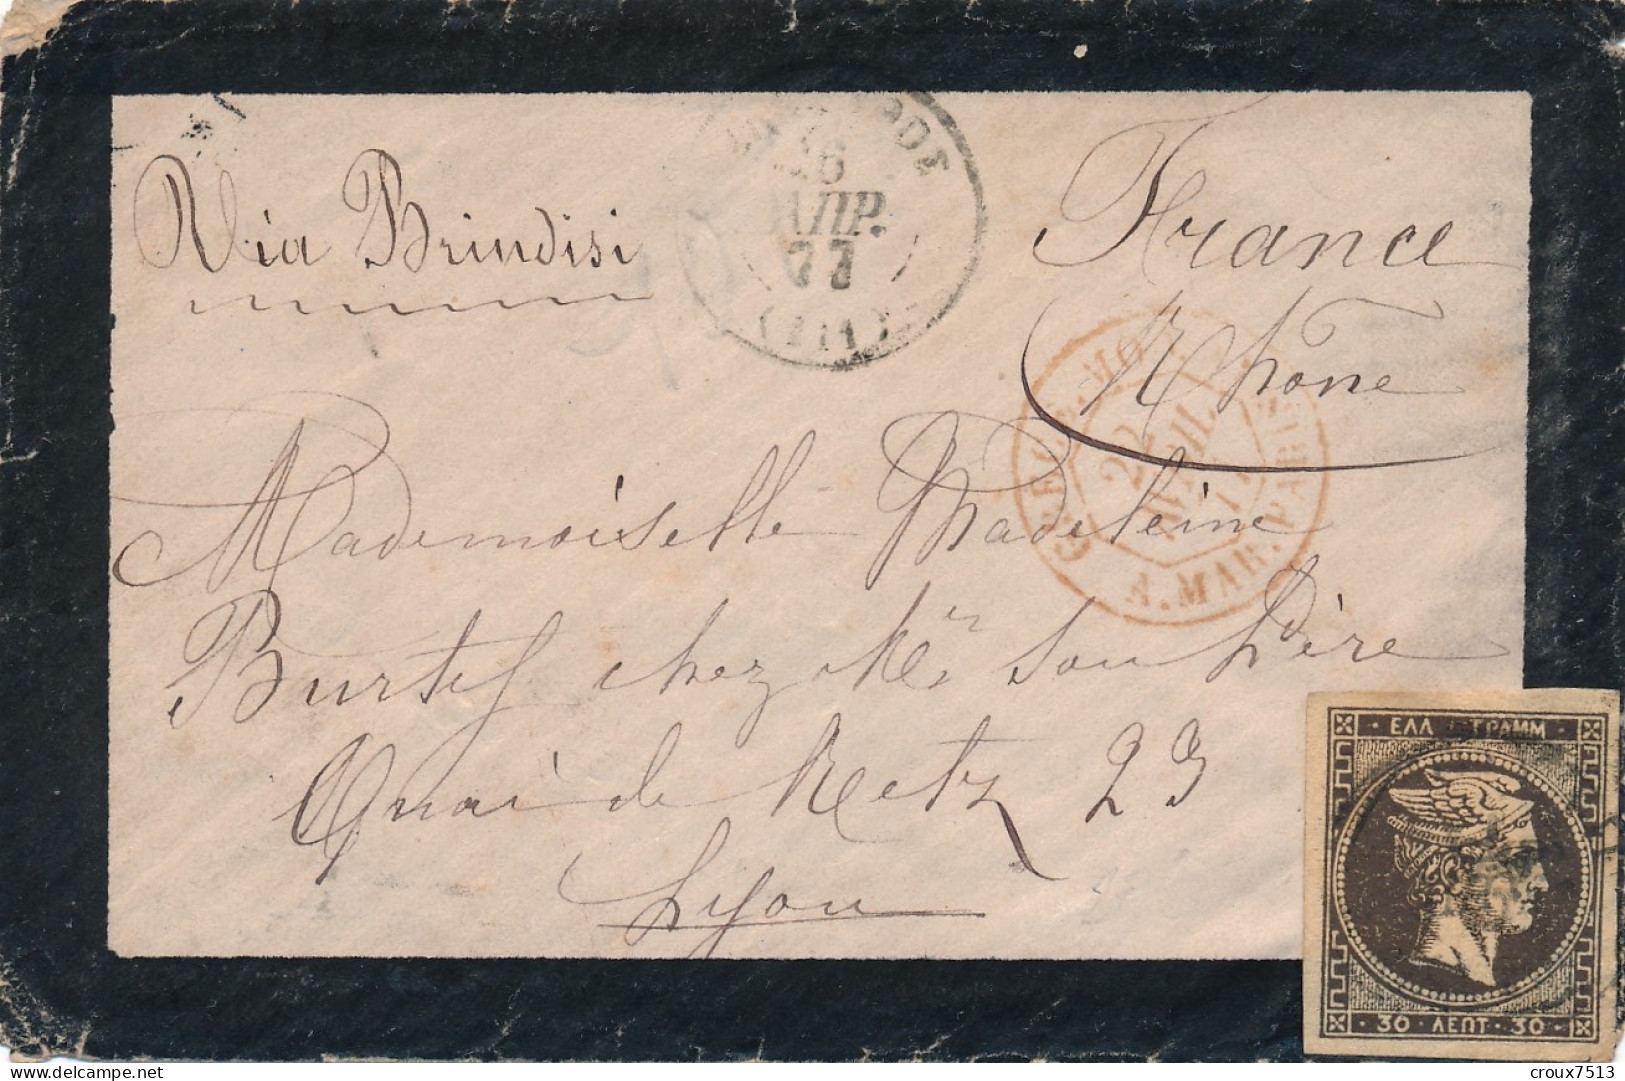 Via Brindisi
ΑΠΡ.
77
(111)
France
Rhône
22
AVRIL
77
A. MAR. PARIS
Mademoiselle Madeleine
Burtel chez Mr son Père
Quai de Retz 23
Lyon
ΕΛΛ ΓΡΑΜΜ
30 ΛΕΠΤ 30
delcampe.net
croux7513